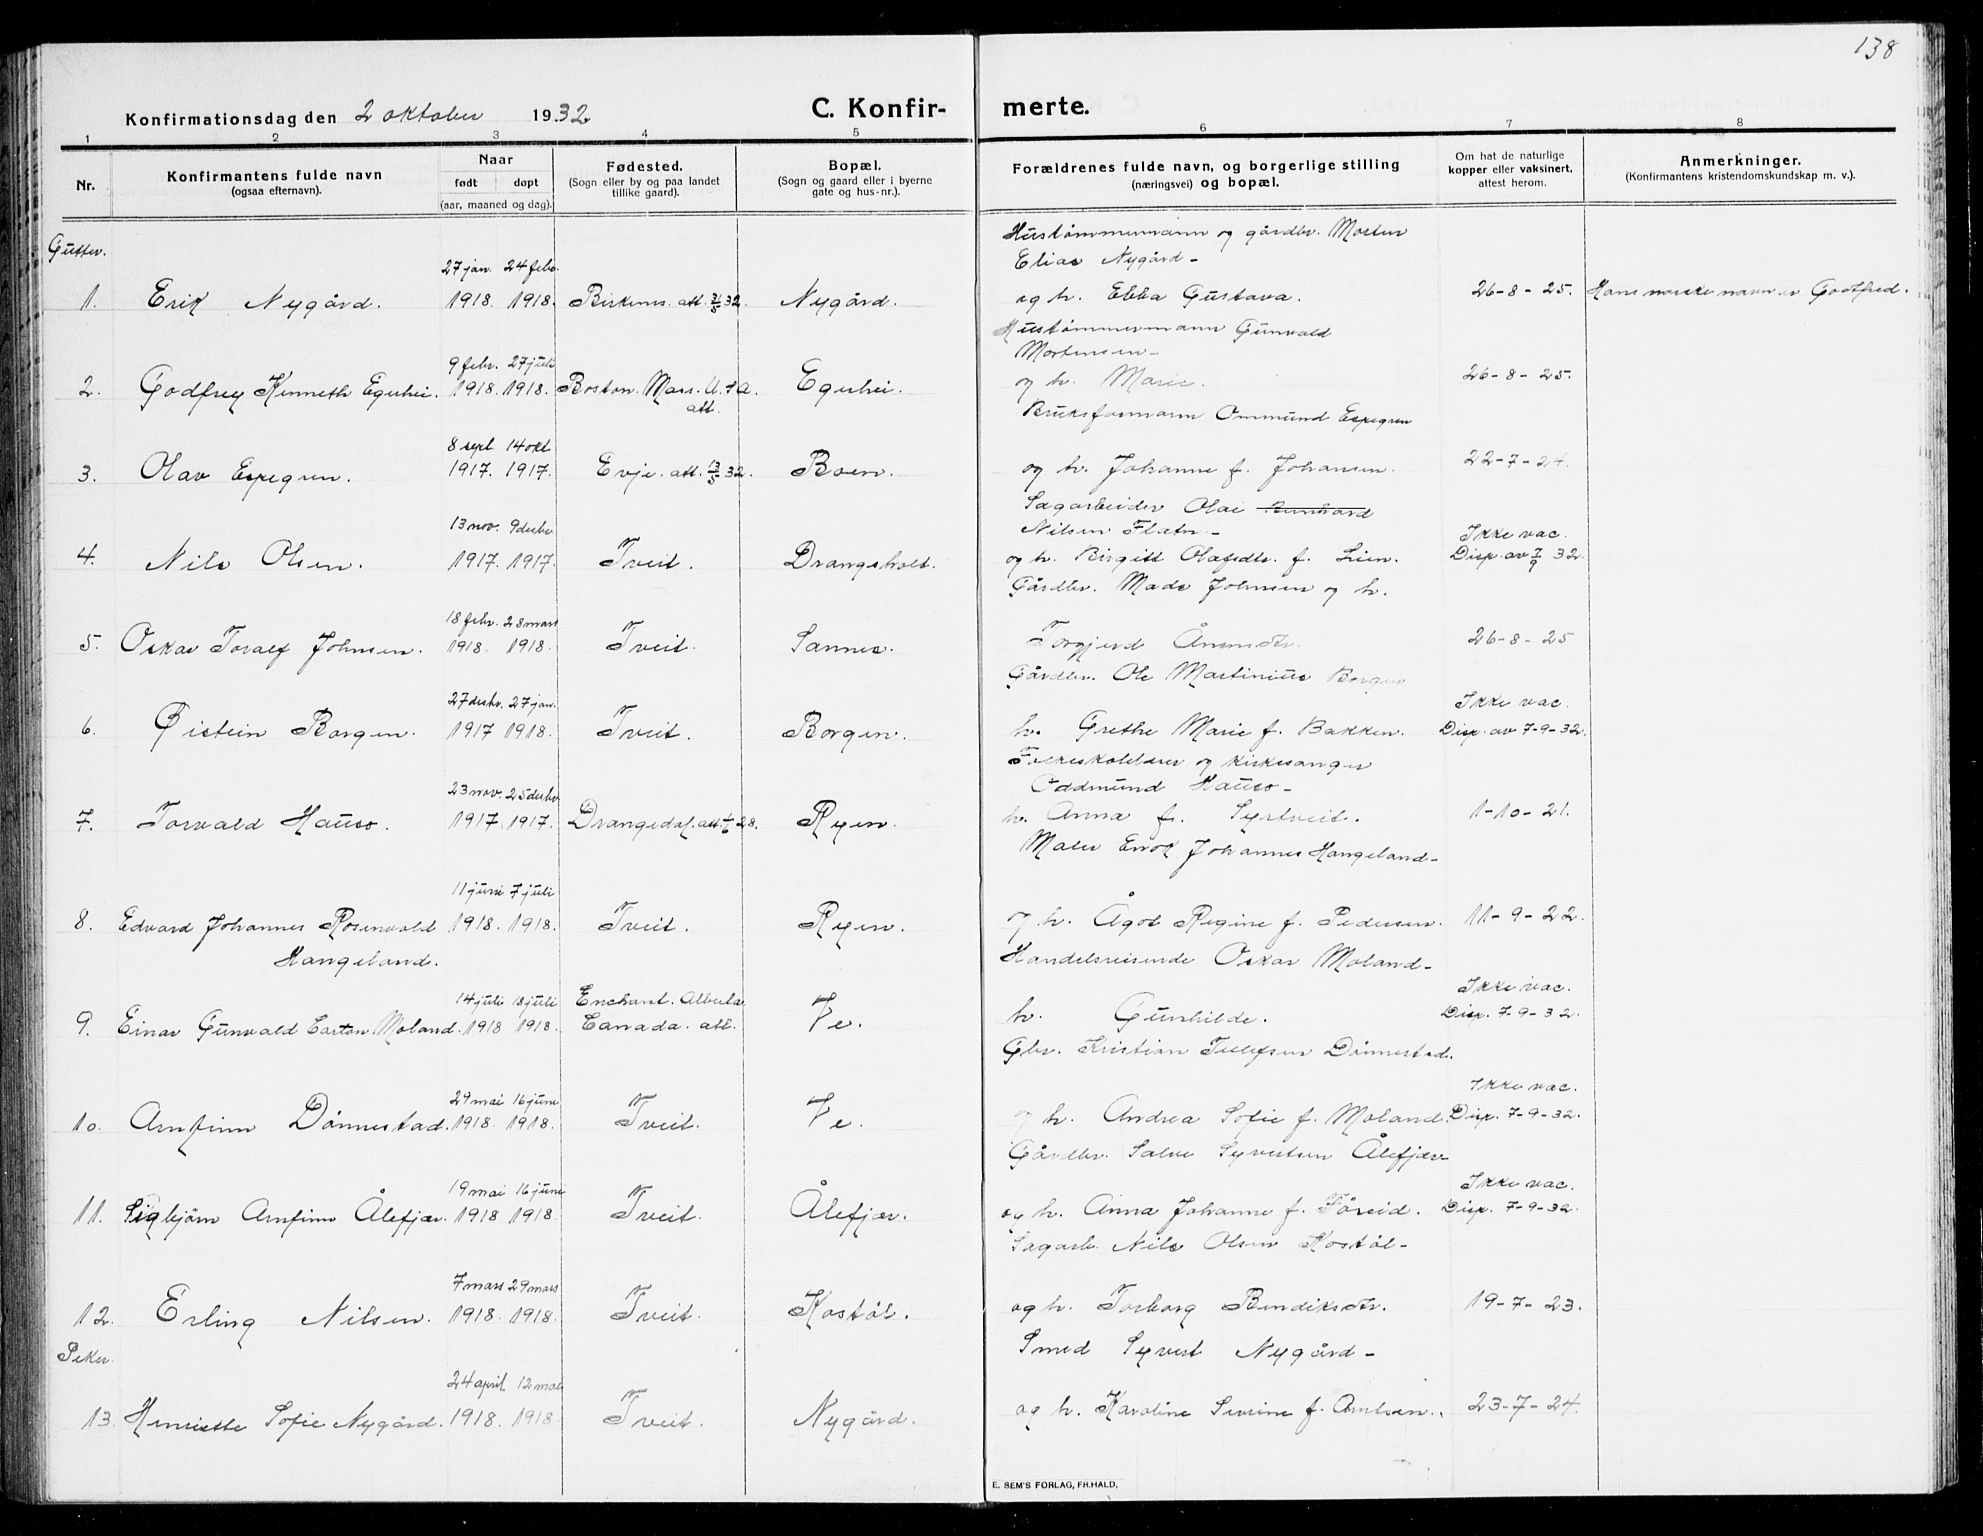 138
Konfirmationsdag den 2 oktober 1932.
C. Konfirmerte.
1 2 3 4 5 6 7 8
Nr.
Konfirmantens fulde navn
(ogsaa efternavn).
Naar
født døpt
(aar, maaned og dag).
Fødested.
(Sogn eller by og paa landet
tillike gaard).
Bopæl.
(Sogn og gaard eller i byerne
gate og hus-nr.).
Forældrenes fulde navn, og borgerlige stilling
(næringsvei) og bopæl.
Om hat de naturlige
kopper eller vaksinert,
attest herom.
Anmerkninger.
(Konfirmantens kristendomskundskap m. v.).
Gutter.
Hustømmermann og gårdbr. Morten
Elias Nygård –
27 jan. 24 febr.
1. Erik Nygård. 1918. 1918. Birkenes. att. 31/5 32. Nygård. og h. Ebba Gustava. 26-8-25. Hans norske navn er Godtfred.
Hustømmermann Gunvald
Mortensen –
9 febr. 27 juli
2. Godfrey Kenneth Egerhei. 1918. 1918. Boston. Mass. U.S.A. att. Egerhei. og h. Marie. 26-8-25.
Bruksformann Ommund Espegren
8 sept. 14 okt.
3. Olav Espegren. 1917. 1917. Evje. att. 13/5 32. Boen. og h. Johanne f. Johansen. 22-7-24.
Sagarbeider Olai Bernhard
Nilsen Flaten –
13 nov. 9 desbr.
4. Nils Olsen. 1917. 1917. Tveit. Drangsholt. og h. Birgitt Olafsdtr. f. Lien. Ikke vac. Disp. av 7/9 32.
Gårdbr. Mads Johnsen og h.
18 febr. 28 mars
5. Oskar Toralf Johnsen. 1918. 1918. Tveit. Sannes. Torgjerd Ånensdtr. 26-8-25
Gårdbr. Ole Martinius Borgen
27 desbr. 27 jan.
6. Øistein Borgen. 1917 1918. Tveit. Borgen. h. Grethe Marie f. Bakken. Ikke vac. Disp. av 7-9-32.
Folkeskolelærer og kirkesanger
Oddmund Hauso –
23 nov. 25 desbr.
7. Torvald Hauso. 1917. 1917. Drangedal. att. 1/6 28. Ryen. h. Anna f. Syrtveit. 1-10-21.
Maler Enok Johannes Hangeland –
11 juni 7 juli
8. Edvard Johannes Rosenvald Hangeland. 1918. 1918. Tveit. Ryen. og h. Ågot Regine f. Pedersen. 11-9-22.
Handelsreisende Oskar Moland –
14 juli 18 juli
9. Einar Gunvald Carton Moland. 1918 1918. Enchant. Alberta. Canada. att. Ve. h. Gunhilde. Ikke vac. Disp. 7-9-32.
Gbr. Kristian Tellefsen Dønnestad.
29 mai 16 juni
10. Arnfinn Dønnestad. 1918. 1918. Tveit. Ve. og h. Andrea Sofie f. Moland. Ikke vac. Disp. 7-9-32.
Gårdbr. Salve Syvertsen Ålefjær –
19 mai 16 juni
11. Sigbjørn Arnfinn Ålefjær. 1918 1918. Tveit. Ålefjær. og h. Anna Johanne f. Föreid. Ikke vac. Disp. 7-9-32.
Sagarb. Nils Olsen Kostøl –
7 mars 29 mars
12. Erling Nilsen. 1918. 1918. Tveit. Kostøl. og h. Torborg Bendiksdtr. 19-7-23.
Piker.
Smed Syvert Nygård –
24 april 12 mai
13. Henriette Sofie Nygård. 1918. 1918. Tveit. Nygård. og h. Karoline Severine f. Arntsen. 23-7-24.
E. SEM'S FORLAG, FR.HALD.